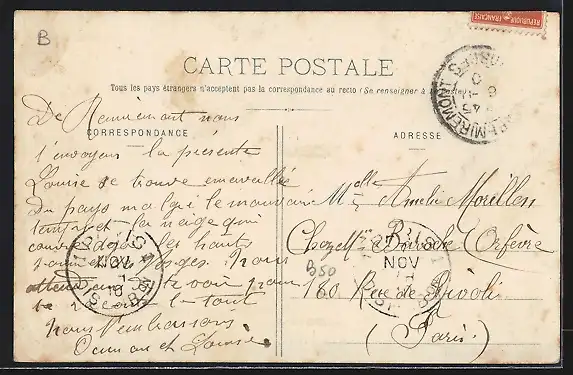 B
REPUBLIQUE FRANÇAISE
CARTE POSTALE
Tous les pays étrangers n'acceptent pas la correspondance au recto (Se renseigner à la Poste)
CORRESPONDANCE
ADRESSE
De Remiremont nous
t'envoyons la présente
Louise se trouve emaveillée
du pays malgré le mauvais
temps et la neige qui
couvre déjà les hauts
sommets Vosges. Nous
attendons te voir pour
te le tout
Nous t'embrassons
et Louise
Melle Amelie Morillon
Chez Mr Orfèvre
180 Rue de Rivoli
(Paris)
B50
REMIREMONT VOSGES
NOV
NOV